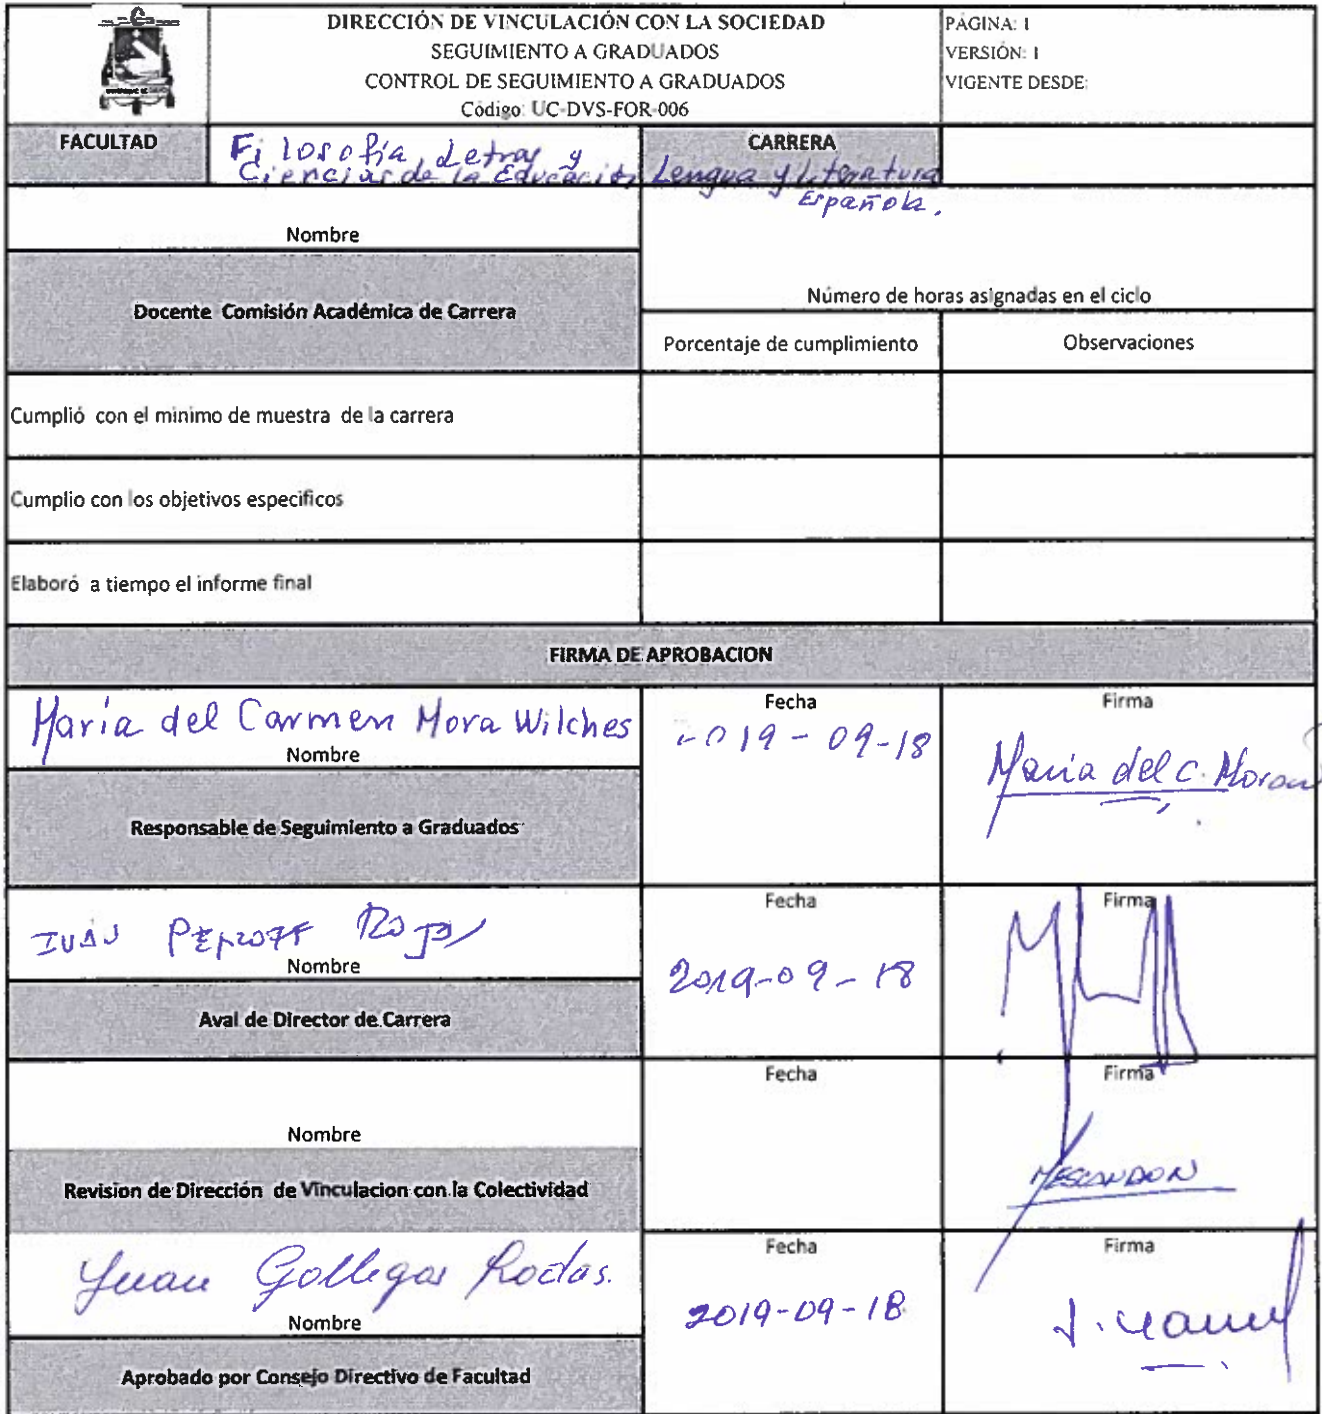 DIRECCIÓN DE VINCULACIÓN CON LA SOCIEDAD
SEGUIMIENTO A GRADUADOS
CONTROL DE SEGUIMIENTO A GRADUADOS
Código: UC-DVS-FOR-006
PÁGINA: 1
VERSIÓN: 1
VIGENTE DESDE:
FACULTAD
Filosofía, Letras y
Ciencias de la Educación
CARRERA
Lengua y Literatura
Española.
Nombre
Docente Comisión Académica de Carrera
Número de horas asignadas en el ciclo
Porcentaje de cumplimiento
Observaciones
Cumplió con el minimo de muestra de la carrera
Cumplio con los objetivos especificos
Elaboró a tiempo el informe final
FIRMA DE APROBACION
María del Carmen Mora Wilches
Nombre
Responsable de Seguimiento a Graduados
Fecha
2019-09-18
Firma
María del C. Mora
Iván Petroff Rojas
Nombre
Aval de Director de Carrera
Fecha
2019-09-18
Firma
Nombre
Revision de Dirección de Vinculacion con la Colectividad
Fecha
Firma
MESCANDON
Juan Gollegos Rodas.
Nombre
Aprobado por Consejo Directivo de Facultad
Fecha
2019-09-18
Firma